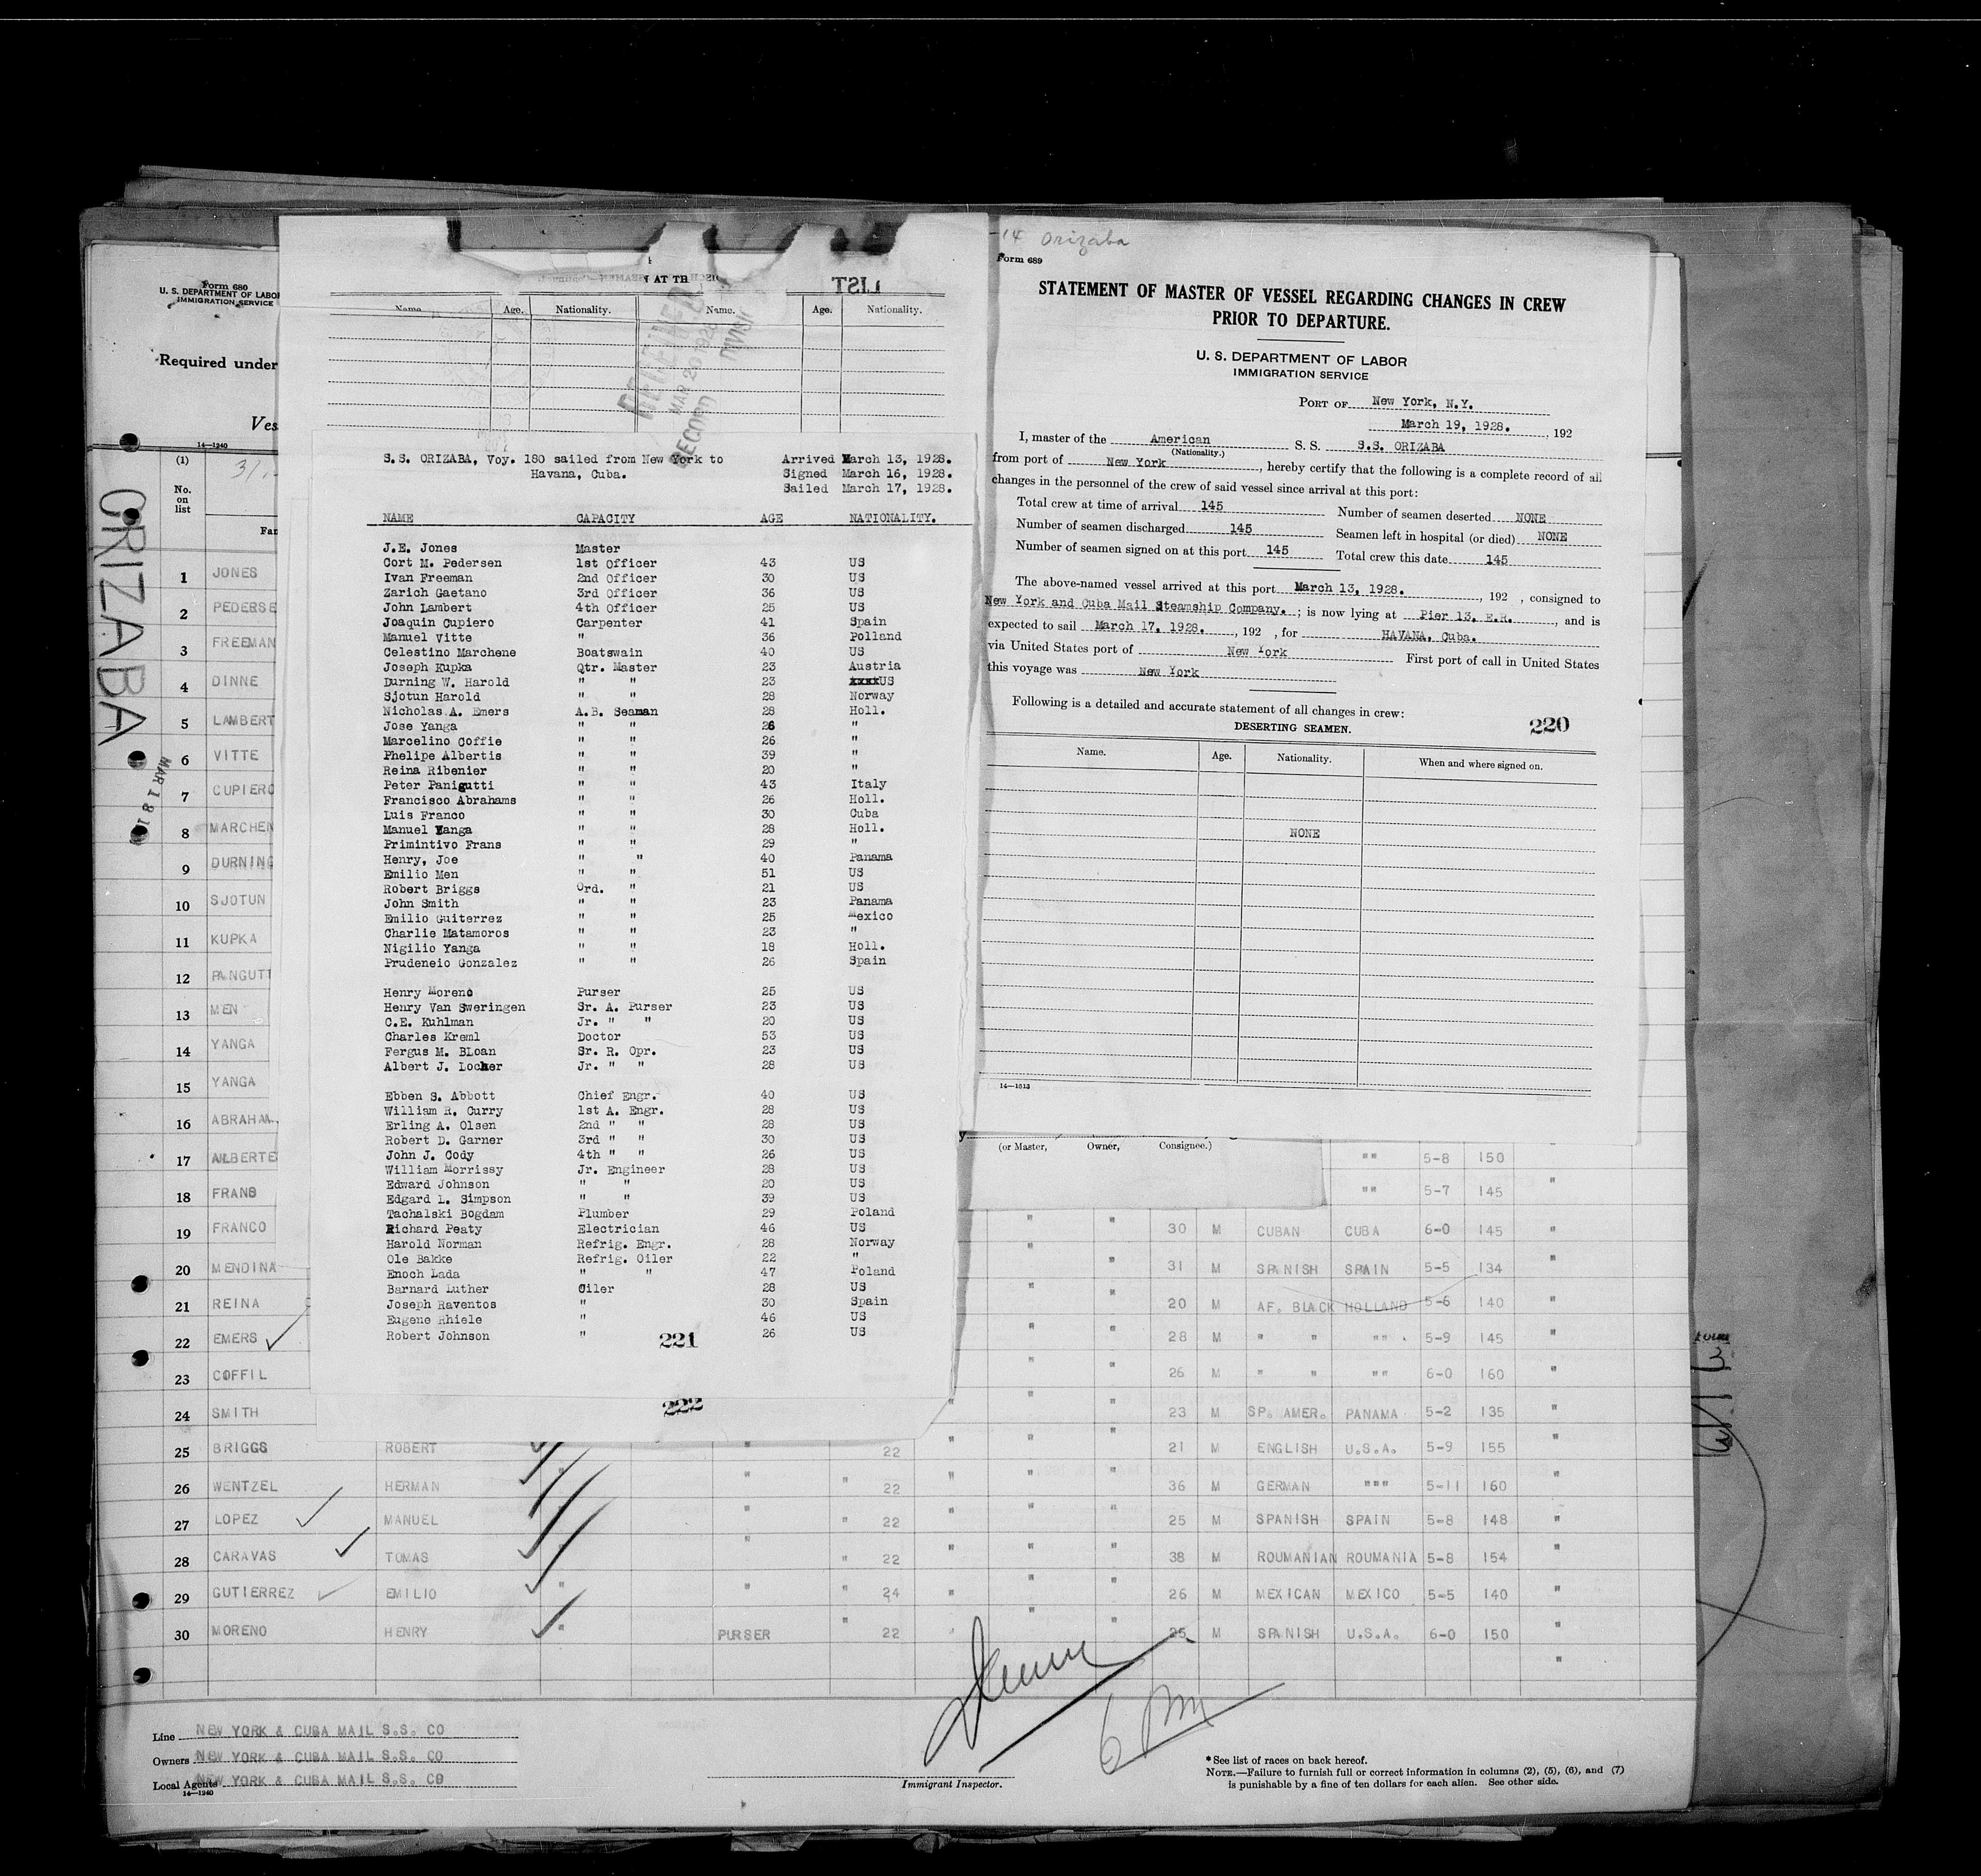 Form 680
U. S. DEPARTMENT OF LABOR
IMMIGRATION SERVICE
Required under
Ves
14—1240
ORIZABA
MAR 18
(1)
No.
on
list
Fam
1 JONES
2 PEDERSE
3 FREEMAN
4 DINNE
5 LAMBERT
6 VITTE
7 CUPIERO
8 MARCHEN
9 DURNING
10 SJOTUN
11 KUPKA
12 PANGUTT
13 MEN
14 YANGA
15 YANGA
16 ABRAHAM
17 ALBERTE
18 FRANS
19 FRANCO
20 MENDINA
21 REINA
22 EMERS
23 COFFIL
24 SMITH
LIST
Name. Age. Nationality. Name. Age. Nationality.
RECEIVED
MAR 20 1928
RECORD DIVISI
S.S. ORIZABA, Voy. 180 sailed from New York to Arrived March 13, 1928.
Havana, Cuba. Signed March 16, 1928.
Sailed March 17, 1928.
NAME CAPACITY AGE NATIONALITY.
J.E. Jones Master
Cort M. Pedersen 1st Officer 43 US
Ivan Freeman 2nd Officer 30 US
Zarich Gaetano 3rd Officer 36 US
John Lambert 4th Officer 25 US
Joaquin Cupiero Carpenter 41 Spain
Manuel Vitte " 36 Polland
Celestino Marchene Boatswain 40 US
Joseph Kupka Qtr. Master 23 Austria
Durning W. Harold " " 23 xxxxUS
Sjotun Harold " " 28 Norway
Nicholas A. Emers A.B. Seaman 28 Holl.
Jose Yanga " " 26 "
Marcelino Coffie " " 26 "
Phelipe Albertis " " 39 "
Reina Ribenier " " 20 "
Peter Panigutti " " 43 Italy
Francisco Abrahams " " 26 Holl.
Luis Franco " " 30 Cuba
Manuel Yanga " " 28 Holl.
Primintivo Frans " " 29 "
Henry, Joe " " 40 Panama
Emilio Men " " 51 US
Robert Briggs Ord. " 21 US
John Smith " " 23 Panama
Emilio Guiterrez " " 25 Mexico
Charlie Matamoros " " 23 "
Nigilio Yanga " " 18 Holl.
Prudeneio Gonzalez " " 26 Spain
Henry Moreno Purser 25 US
Henry Van Sweringen Sr. A. Purser 23 US
C.E. Kuhlman Jr. " " 20 US
Charles Kreml Doctor 53 US
Fergus M. BLoan Sr. R. Opr. 23 US
Albert J. Locker Jr. " " 28 US
Ebben S. Abbott Chief Engr. 40 US
William R. Curry 1st A. Engr. 28 US
Erling A. Olsen 2nd " " 28 US
Robert D. Garner 3rd " " 30 US
John J. Cody 4th " " 26 US
William Morrissy Jr. Engineer 28 US
Edward Johnson " " 20 US
Edgard L. Simpson " " 39 US
Tachalski Bogdam Plumber 29 Poland
Richard Peaty Electrician 46 US
Harold Norman Refrig. Engr. 28 Norway
Ole Bakke Refrig. Oiler 22 "
Enoch Lada " " 47 Poland
Barnard Luther Oiler 28 US
Joseph Raventos " 30 Spain
Eugene Rhiele " 46 US
Robert Johnson " 26 US
221
222
14 Orizaba
Form 689
STATEMENT OF MASTER OF VESSEL REGARDING CHANGES IN CREW
PRIOR TO DEPARTURE.
U. S. DEPARTMENT OF LABOR
IMMIGRATION SERVICE
PORT OF New York, N.Y.
March 19, 1928. , 192
I, master of the American S. S. S.S. ORIZABA
(Nationality.)
from port of New York , hereby certify that the following is a complete record of all
changes in the personnel of the crew of said vessel since arrival at this port:
Total crew at time of arrival 145 Number of seamen deserted NONE
Number of seamen discharged 145 Seamen left in hospital (or died) NONE
Number of seamen signed on at this port 145 Total crew this date 145
The above-named vessel arrived at this port March 13, 1928. , 192 , consigned to
New York and Cuba Mail Steamship Company. ; is now lying at Pier 13, E.R. , and is
expected to sail March 17, 1928. , 192 , for HAVANA, Cuba.
via United States port of New York First port of call in United States
this voyage was New York
Following is a detailed and accurate statement of all changes in crew:
DESERTING SEAMEN. 220
Name. Age. Nationality. When and where signed on.
NONE
14—1613
(or Master, Owner, Consignee.)
"" 5-8 150
"" 5-7 145 "
" " 30 M CUBAN CUBA 6-0 145 "
" " 31 M SPANISH SPAIN 5-5 134 "
" " 20 M AF. BLACK HOLLAND 5-6 140 "
" " 28 M " " "" 5-9 145 "
" " 26 M " " "" 6-0 160 "
" " " 23 M SP. AMER. PANAMA 5-2 135 "
25 BRIGGS ROBERT " 22 " " " 21 M ENGLISH U.S.A. 5-9 155 "
26 WENTZEL HERMAN " " " 22 " " " 36 M GERMAN """ 5-11 160 "
27 LOPEZ MANUEL " " 22 " " " 25 M SPANISH SPAIN 5-8 148 "
28 CARAVAS TOMAS " " " 22 " " " 38 M ROUMANIAN ROUMANIA 5-8 154 "
29 GUTIERREZ EMILIO " " " 24 " " " 26 M MEXICAN MEXICO 5-5 140 "
30 MORENO HENRY " PURSER " 22 " " " 25 M SPANISH U.S.A. 6-0 150 "
6 PM
Line NEW YORK & CUBA MAIL S.S. CO
Owners NEW YORK & CUBA MAIL S.S. CO
Local Agents NEW YORK & CUBA MAIL S.S. CO
14—1240
Immigrant Inspector.
*See list of races on back hereof.
NOTE.—Failure to furnish full or correct information in columns (2), (5), (6), and (7)
is punishable by a fine of ten dollars for each alien. See other side.